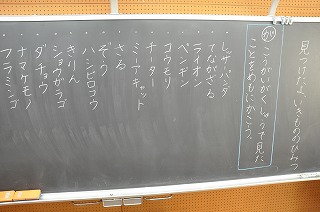 見つけたよ いきもののひみつ
めあて
こうがくしゅうで見た
ことをめもにかこう。
・レッサーパンダ
・てながざる
・ライオン
・ペンギン
・コウモリ
・チーター
・ミーアキャット
・さる
・ぞう
・ハシビロコウ
・きりん
・ショウガラゴ
・ダチョウ
・ナマケモノ
・フラミンゴ